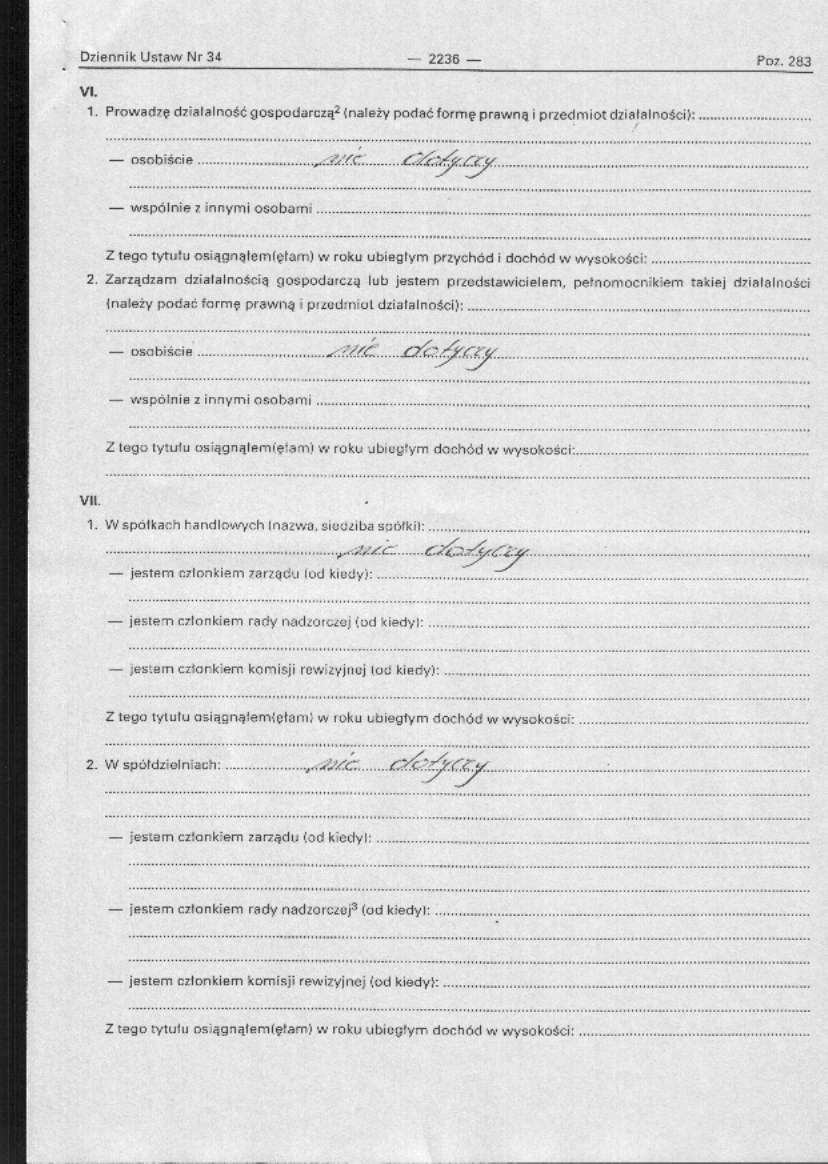 Dziennik Ustaw Nr 34 — 2236 — Poz. 283
VI.
1. Prowadzę działalność gospodarczą² (należy podać formę prawną i przedmiot działalności): ....................
....................
— osobiście .................... nie dotyczy ....................
....................
— wspólnie z innymi osobami ....................
....................
Z tego tytułu osiągnąłem(ęłam) w roku ubiegłym przychód i dochód w wysokości: ....................
2. Zarządzam działalnością gospodarczą lub jestem przedstawicielem, pełnomocnikiem takiej działalności
(należy podać formę prawną i przedmiot działalności): ....................
....................
— osobiście .................... nie dotyczy ....................
....................
— wspólnie z innymi osobami ....................
....................
Z tego tytułu osiągnąłem(ęłam) w roku ubiegłym dochód w wysokości: ....................
....................
VII.
1. W spółkach handlowych (nazwa, siedziba spółki): ....................
.................... nie dotyczy ....................
— jestem członkiem zarządu (od kiedy): ....................
....................
— jestem członkiem rady nadzorczej (od kiedy): ....................
....................
— jestem członkiem komisji rewizyjnej (od kiedy): ....................
....................
Z tego tytułu osiągnąłem(ęłam) w roku ubiegłym dochód w wysokości: ....................
....................
2. W spółdzielniach: .................... nie dotyczy ....................
....................
....................
— jestem członkiem zarządu (od kiedy): ....................
....................
....................
— jestem członkiem rady nadzorczej³ (od kiedy): ....................
....................
....................
— jestem członkiem komisji rewizyjnej (od kiedy): ....................
....................
Z tego tytułu osiągnąłem(ęłam) w roku ubiegłym dochód w wysokości: ....................